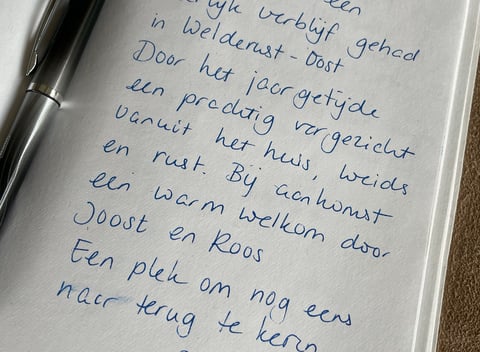 een
verblijf gehad
in Welderust-Oost
Door het jaargetijde
een prachtig vergezicht
vanuit het huis, weids
en rust. Bij aankomst
een warm welkom door
Joost en Roos
Een plek om nog eens
naar terug te keren